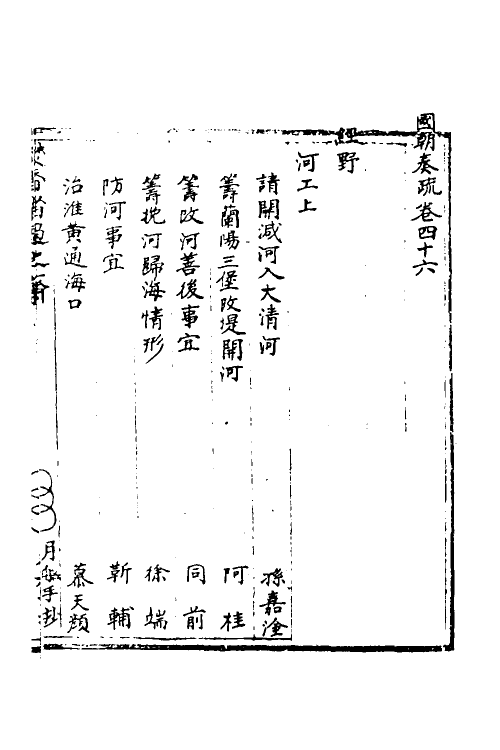 國朝奏疏卷四十六
經野
河工上
請開減河入大清河 孫嘉淦
籌蘭陽三堡改堤開河 阿桂
籌改河善後事宜 同前
籌挽河歸海情形 徐端
防河事宜 靳輔
治淮黃通海口 慕天顏